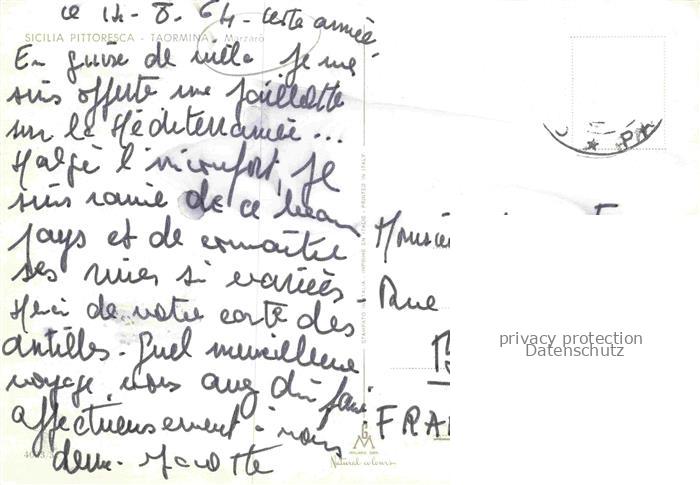 ce 14-8-64. cette année.
SICILIA PITTORESCA - TAORMINA - Mazzarò
En guise de villa je me
suis offerte une paillotte
sur la Méditerranée...
Malgré l'inconfort, je
suis ravie de ce beau
pays et de connaître
ses rives si variées -
Merci de votre carte des
antilles. Quel merveilleux
voyage vous avez dû faire
affectueusement à vous
deux. Mayotte
STAMPATO IN ITALIA - IMPRIMÉ EN ITALIE - PRINTED IN ITALY
Monsie
Rue
FRA
MILANO
Natural colours
privacy protection
Datenschutz